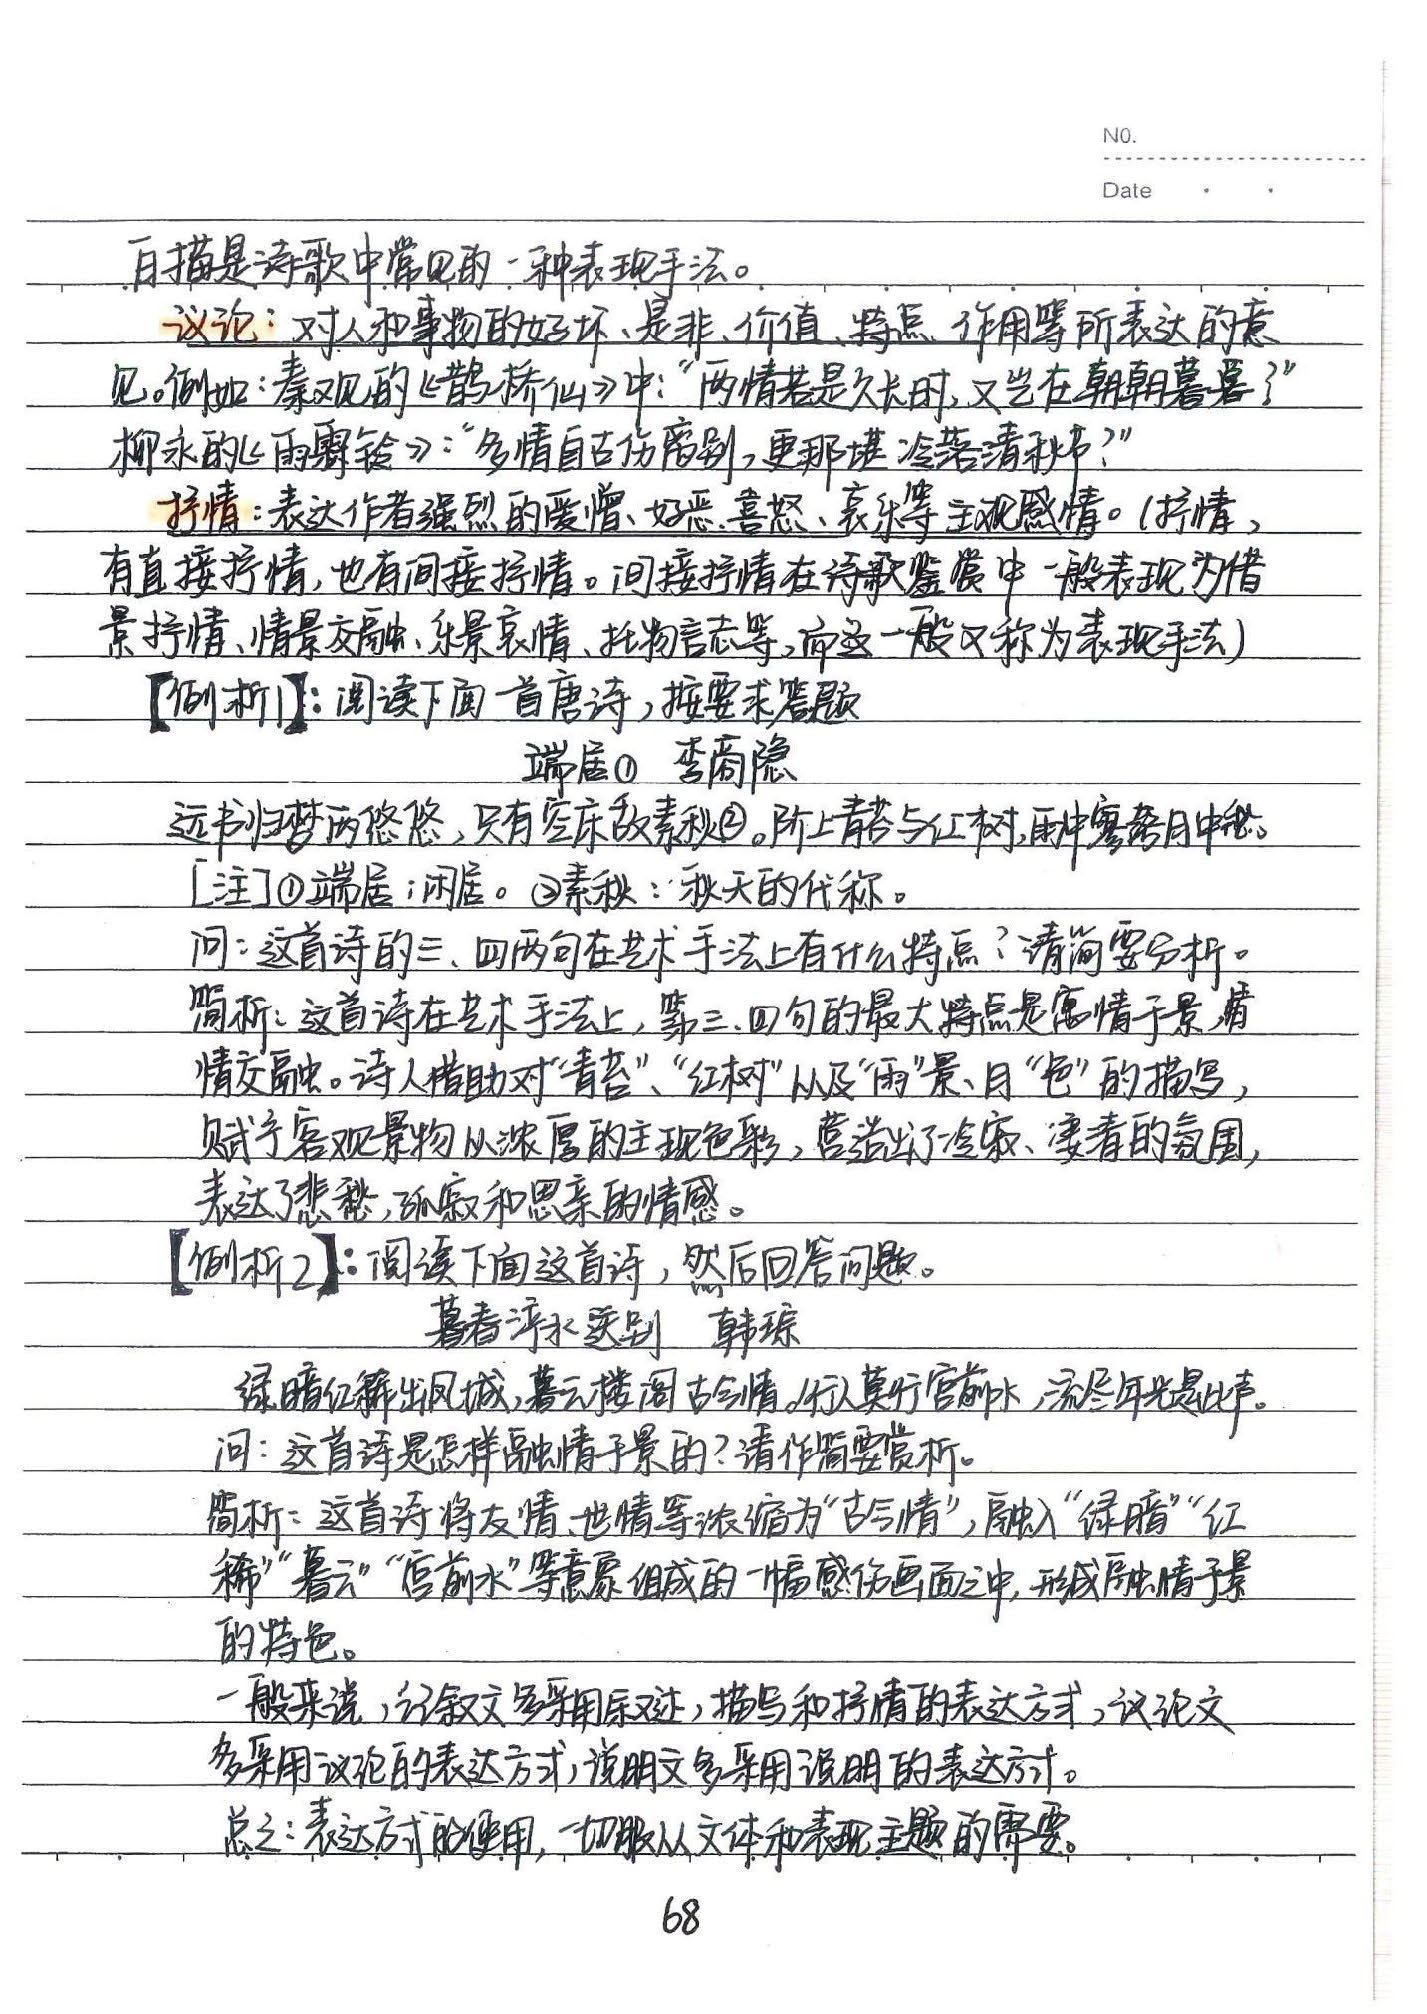 NO.
Date
白描是诗歌中常见的一种表现手法。
议论：对人和事物的好坏、是非、价值、特点、作用等所表达的意
见。例如：秦观的《鹊桥仙》中：“两情若是久长时，又岂在朝朝暮暮？”
柳永的《雨霖铃》：“多情自古伤离别，更那堪冷落清秋节？”
抒情：表达作者强烈的爱憎、好恶、喜怒、哀乐等主观感情。（抒情，
有直接抒情，也有间接抒情。间接抒情在诗歌鉴赏中一般表现为借
景抒情、情景交融、乐景哀情、托物言志等，而这一般又称为表现手法）
【例析1】：阅读下面一首唐诗，按要求答题
端居① 李商隐
远书归梦两悠悠，只有空床敌素秋②。阶上青苔与红树，雨中寥落月中愁。
[注]①端居：闲居。②素秋：秋天的代称。
问：这首诗的三、四两句在艺术手法上有什么特点？请简要分析。
简析：这首诗在艺术手法上，第三、四句的最大特点是寓情于景，情
情交融。诗人借助对“青苔”、“红树”以及“雨”景、月“色”的描写，
赋予客观景物以浓厚的主观色彩，营造出了冷寂、凄清的氛围，
表达了悲愁，孤寂和思亲的情感。
【例析2】：阅读下面这首诗，然后回答问题。
暮春浐水送别 韩琮
绿暗红稀出凤城，暮云楼阁古今情。行人莫听宫前水，流尽年光是此声。
问：这首诗是怎样融情于景的？请作简要赏析。
简析：这首诗将友情、世情等浓缩为“古今情”，融入“绿暗”“红
稀”“暮云”“宫前水”等意象组成的一幅感伤画面之中，形成融情于景
的特色。
一般来说，记叙文多采用叙述，描写和抒情的表达方式，议论文
多采用议论的表达方式，说明文多采用说明的表达方式。
总之：表达方式的使用，一切服从文体和表现主题的需要。
68